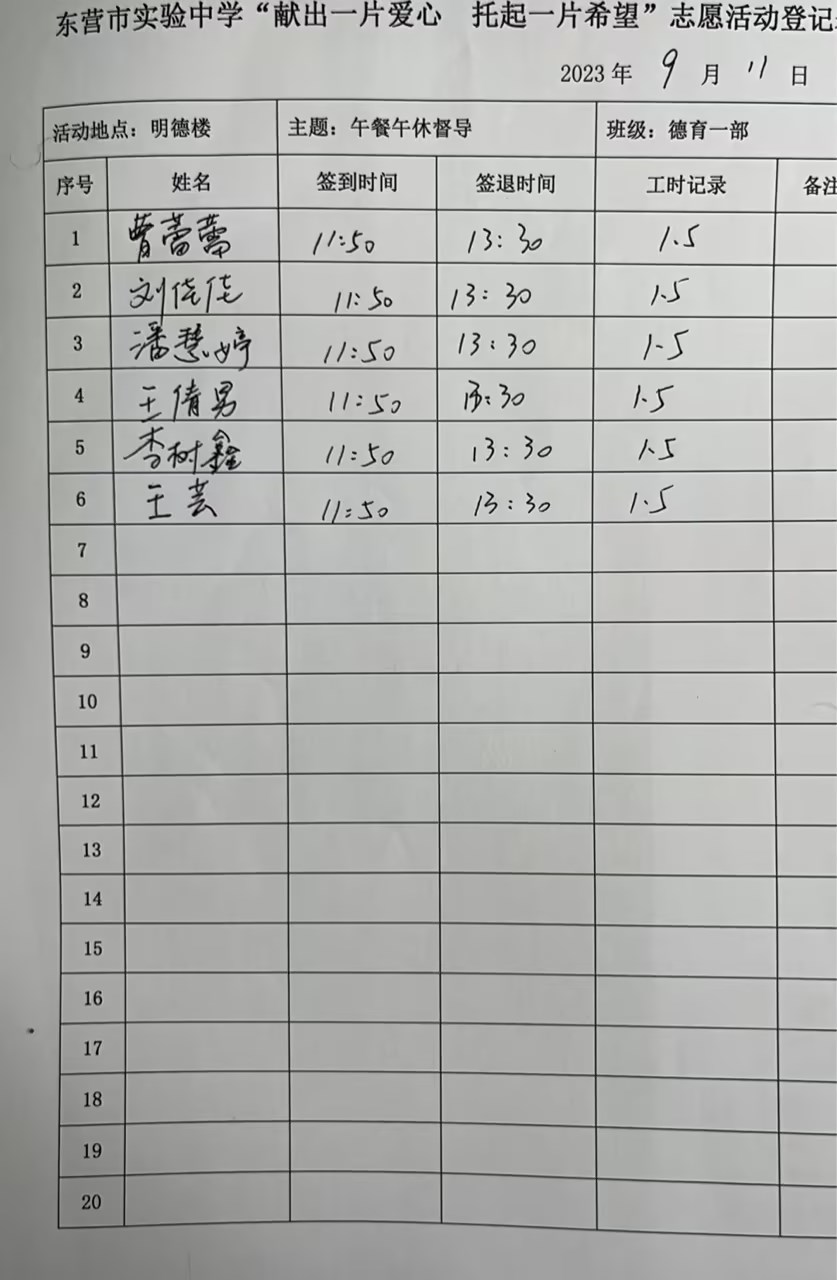 东营市实验中学“献出一片爱心 托起一片希望”志愿活动登记
2023年 9 月 11 日
活动地点：明德楼 主题：午餐午休督导 班级：德育一部
序号 姓名 签到时间 签退时间 工时记录 备注
1 曹蕾蕾 11:50 13:30 1.5
2 刘佳佳 11:50 13:30 1.5
3 潘慧婷 11:50 13:30 1.5
4 王倩男 11:50 13:30 1.5
5 李树鑫 11:50 13:30 1.5
6 王芸 11:50 13:30 1.5
7
8
9
10
11
12
13
14
15
16
17
18
19
20